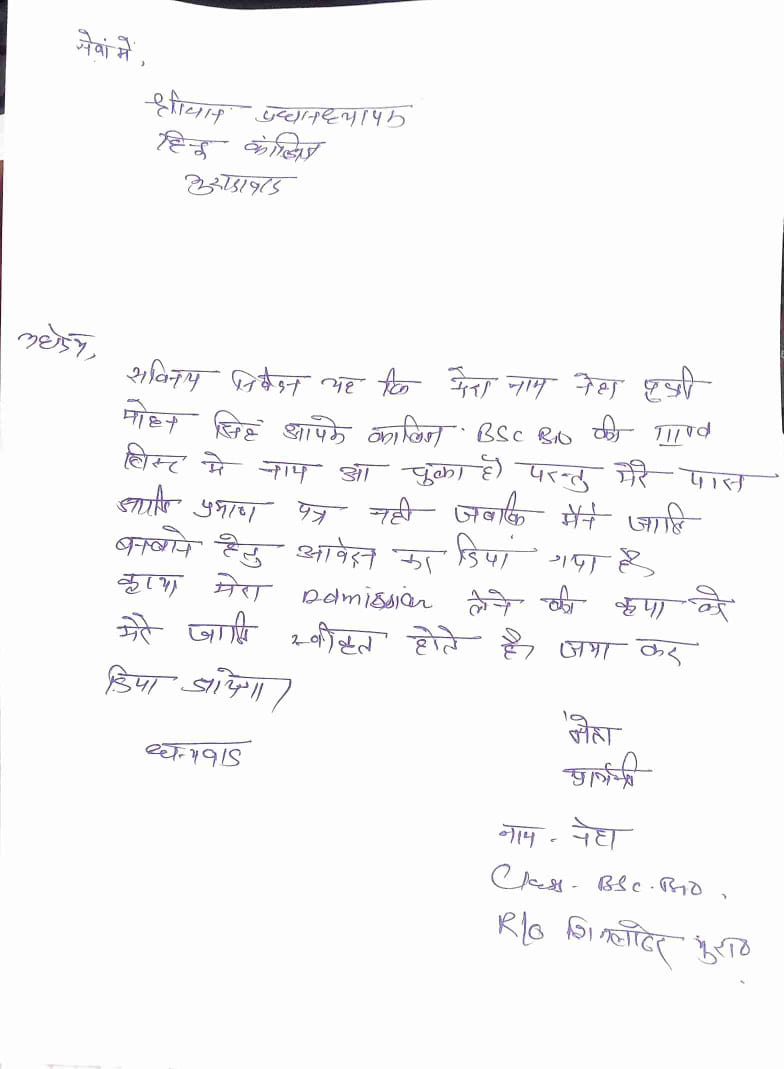 सेवां में,
श्रीमान प्रधानध्यापक
हिन्दू कॉलिज
मुरादाबाद
महोदय,
सविनय निवेदन यह कि मेरा नाम नेहा पुत्री
मोहन सिंह आपके कालिज BSc BIO की
लिस्ट मे नाम आ चुका है। परन्तु मेरे पास
जाति प्रमाण पत्र नही जबकि मैंने जाति
बनवाने हेतु आवेदन कर दिया गया है
कृपा मेरा Admission लेने की कृपा करे
मेरे जाति स्वीकृत होते है, जमा कर
दिया जायेगा।
ध्यन्यवाद
नेहा
प्रार्थनी
नाम - नेहा
Class - BSc. BIO.
R/O